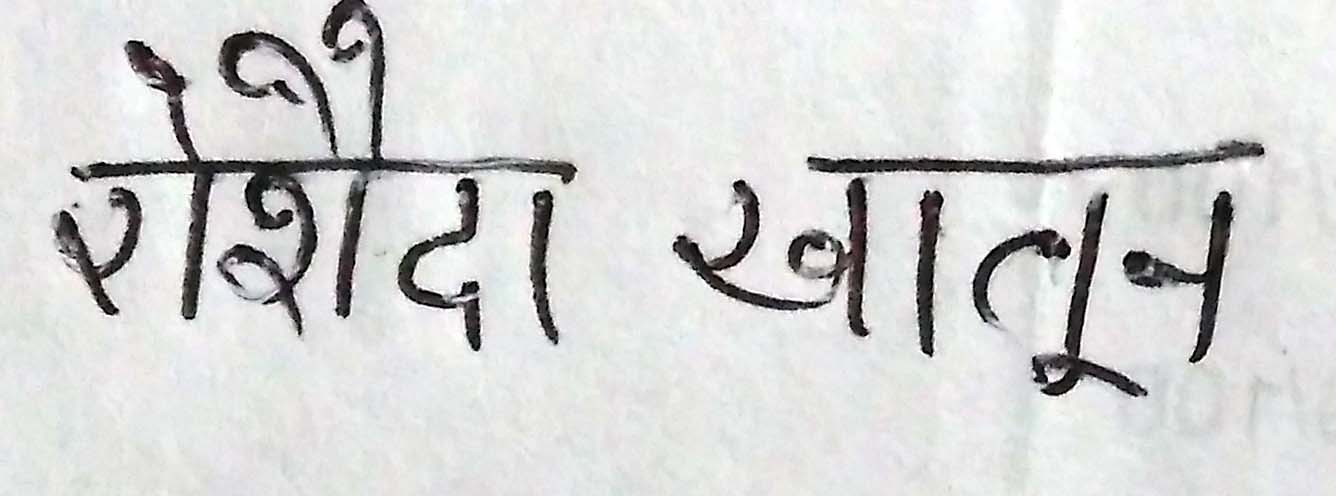 रोशैदा खातून